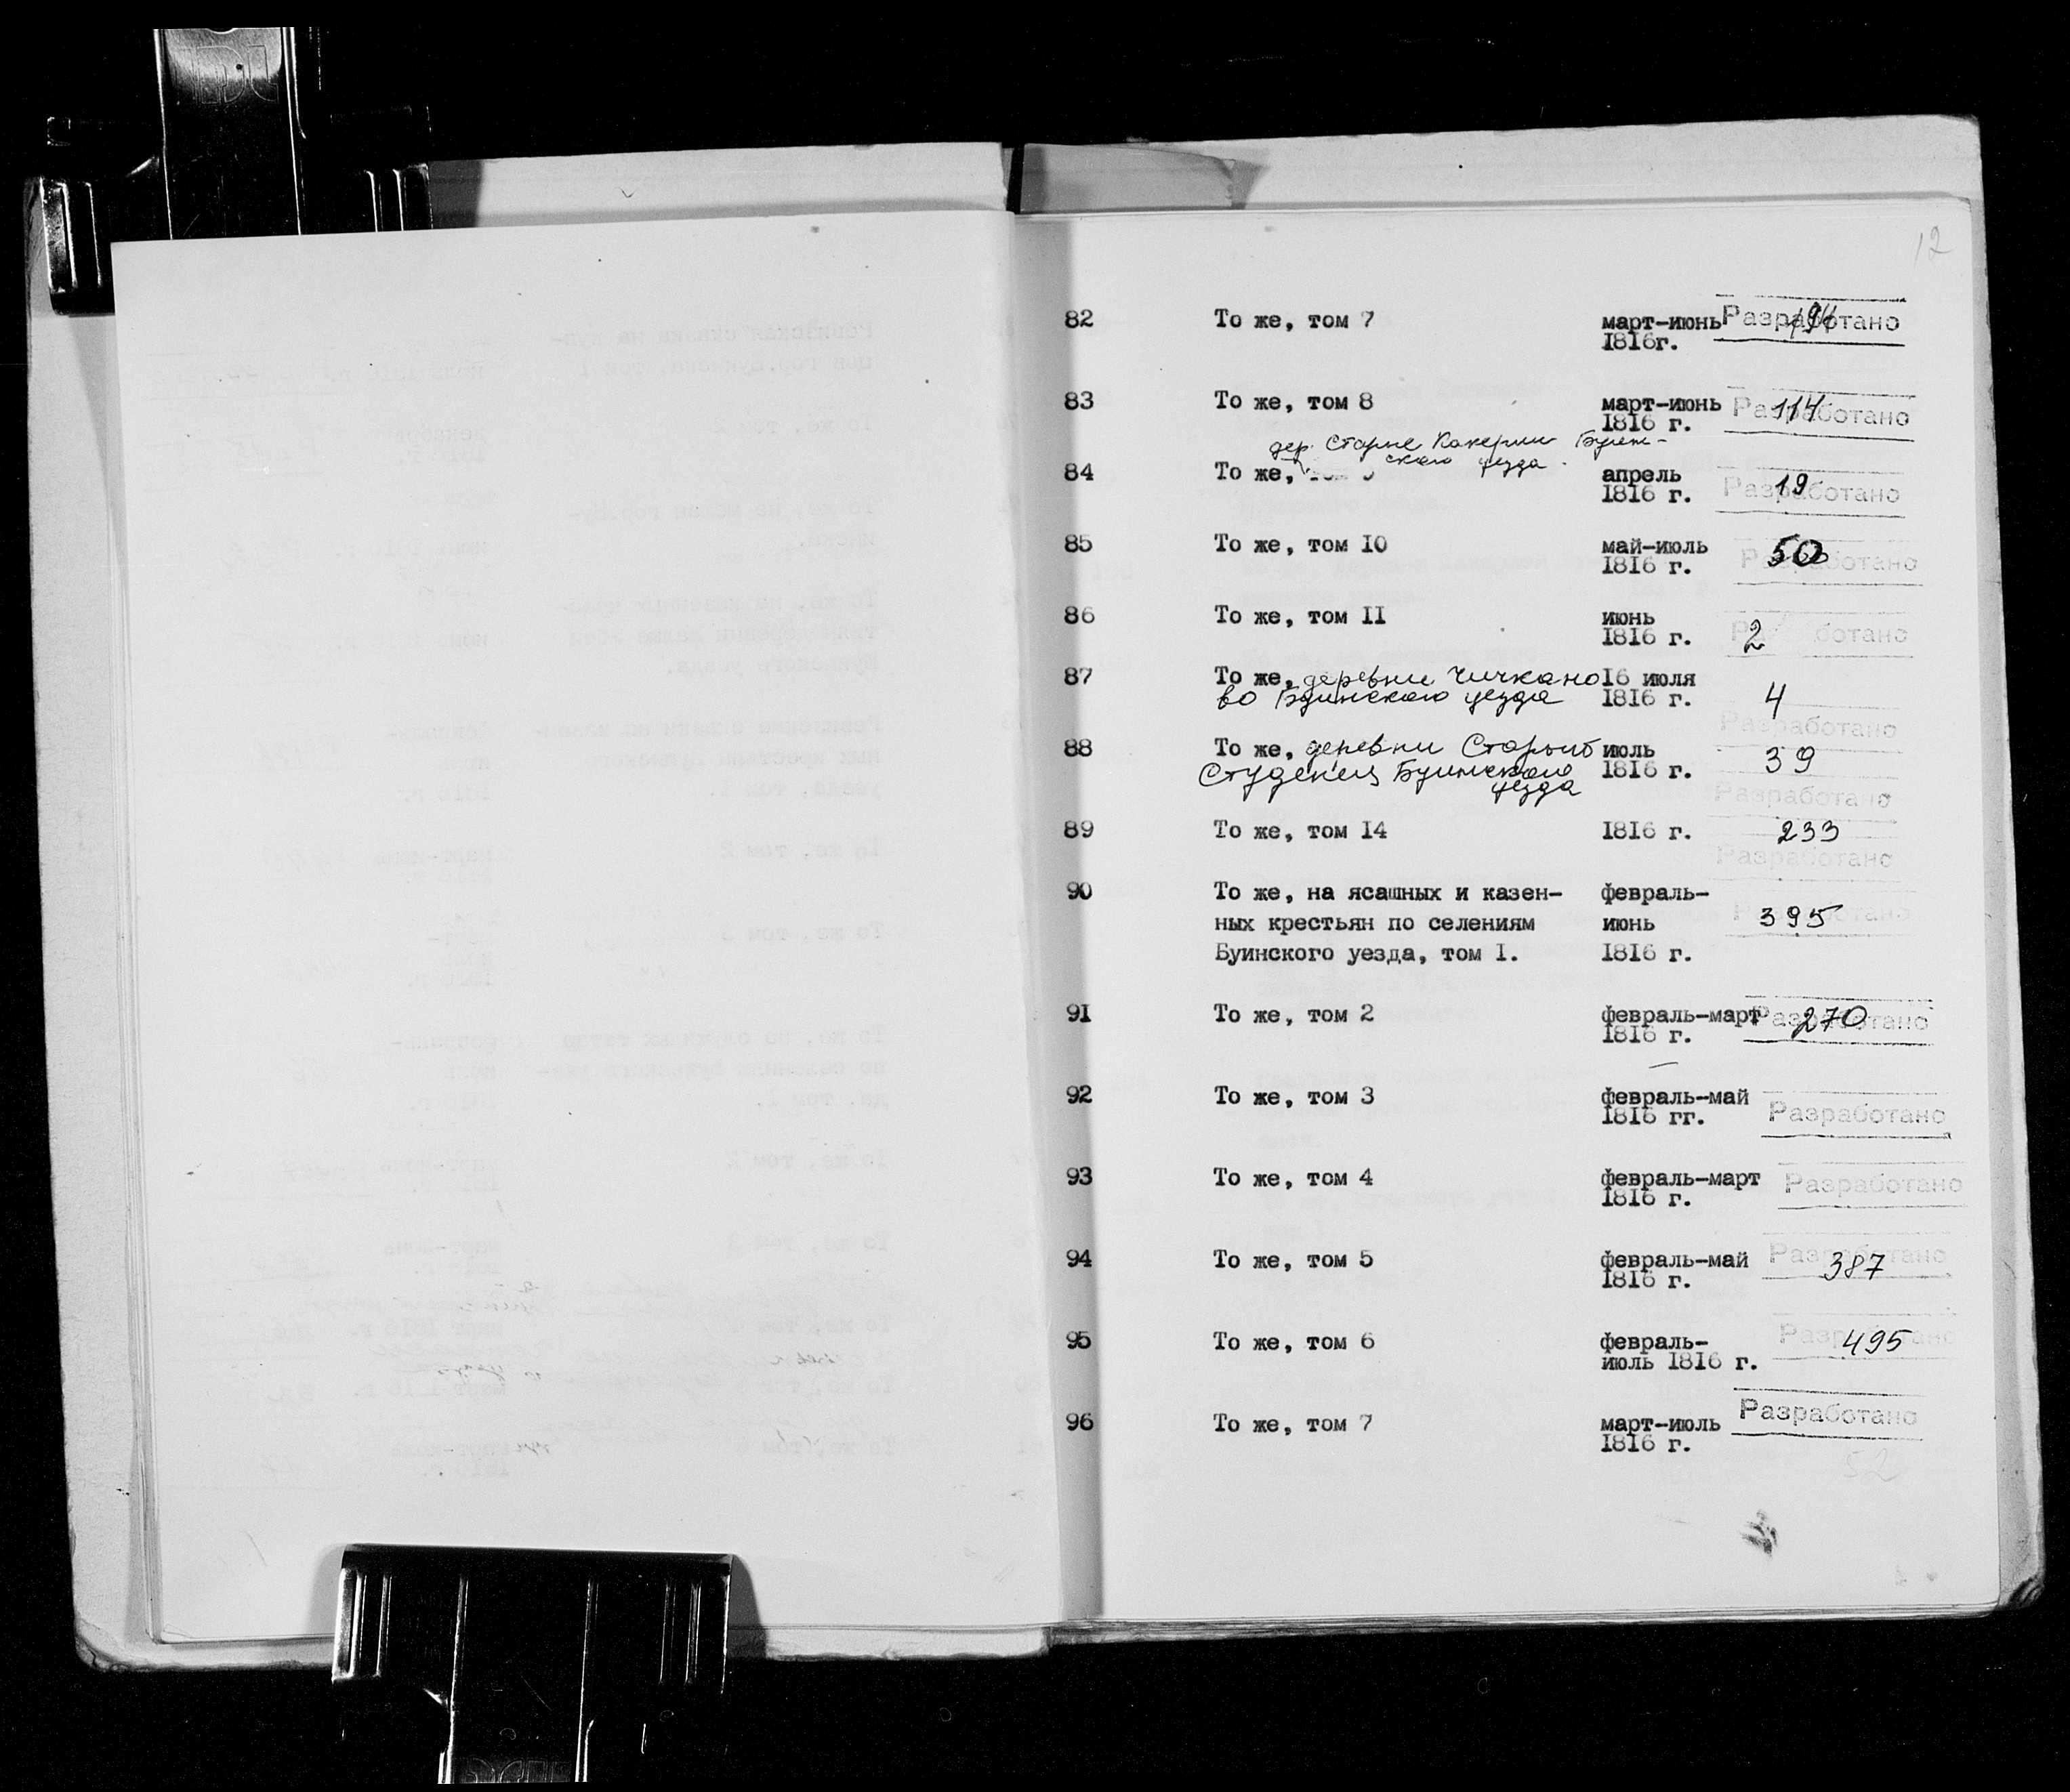 12
82 То же, том 7 март-июнь Разработано
1816г.
83 То же, том 8 март-июнь 114 Разработано
1816 г.
дер. Старые Какерли Буин-
ского уезда.
84 То же, апрель 19 Разработано
1816 г.
85 То же, том 10 май-июль 50 Разработано
1816 г.
86 То же, том II июнь 2 Разработано
1816 г.
87 То же, деревни Чичкано 16 июля
во Буинского уезда 1816 г. 4
Разработано
88 То же, деревни Старый июль
Студенец Буинского 1816 г. 39
уезда
Разработано
89 То же, том 14 1816 г. 233
Разработано
90 То же, на ясашных и казен- февраль-
ных крестьян по селениям июнь 395 Разработано
Буинского уезда, том 1. 1816 г.
91 То же, том 2 февраль-март 270 Разработано
1816 г.
92 То же, том 3 февраль-май
1816 гг. Разработано
93 То же, том 4 февраль-март Разработано
1816 г.
94 То же, том 5 февраль-май 387 Разработано
1816 г.
95 То же, том 6 февраль- 495 Разработано
июль 1816 г.
96 То же, том 7 март-июль Разработано
1816 г.
52